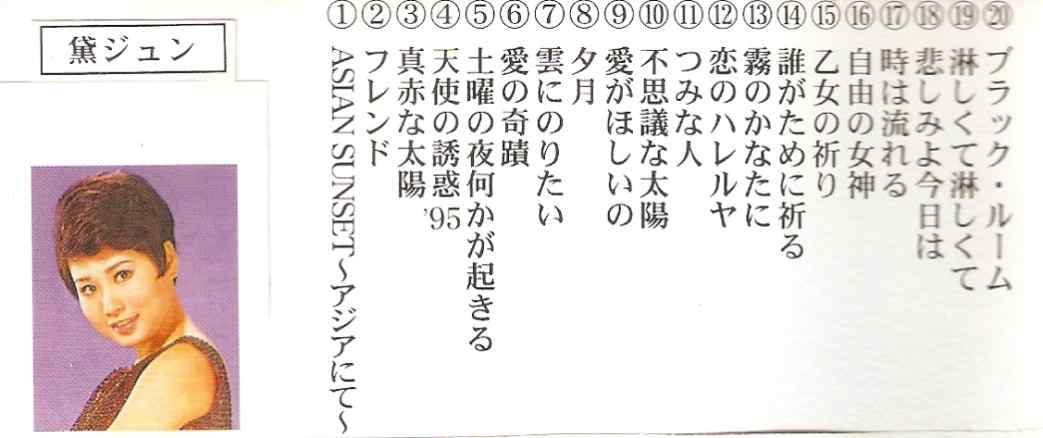 黛ジュン
① ASIAN SUNSET～アジアにて～
② フレンド
③ 真赤な太陽
④ 天使の誘惑’95
⑤ 土曜の夜何かが起きる
⑥ 愛の奇蹟
⑦ 雲にのりたい
⑧ 夕月
⑨ 愛がほしいの
⑩ 不思議な太陽
⑪ つみな人
⑫ 恋のハレルヤ
⑬ 霧のかなたに
⑭ 誰がために祈る
⑮ 乙女の祈り
⑯ 自由の女神
⑰ 時は流れる
⑱ 悲しみよ今日は
⑲ 淋しくて淋しくて
⑳ ブラック・ルーム